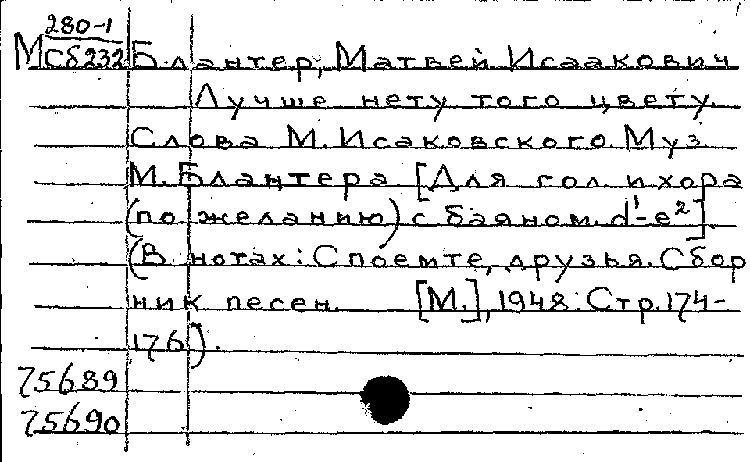 280-1
МСб232 Блантер, Матвей Исаакович
Лучше нету того цвету.
Слова М. Исаковского. Муз.
М. Блантера [Для гол. и хора
(по желанию) с баяном. d¹-e²].
(В нотах: Споемте, друзья. Сбор
ник песен. [М.], 1948. Стр. 174-
176).
75689
75690